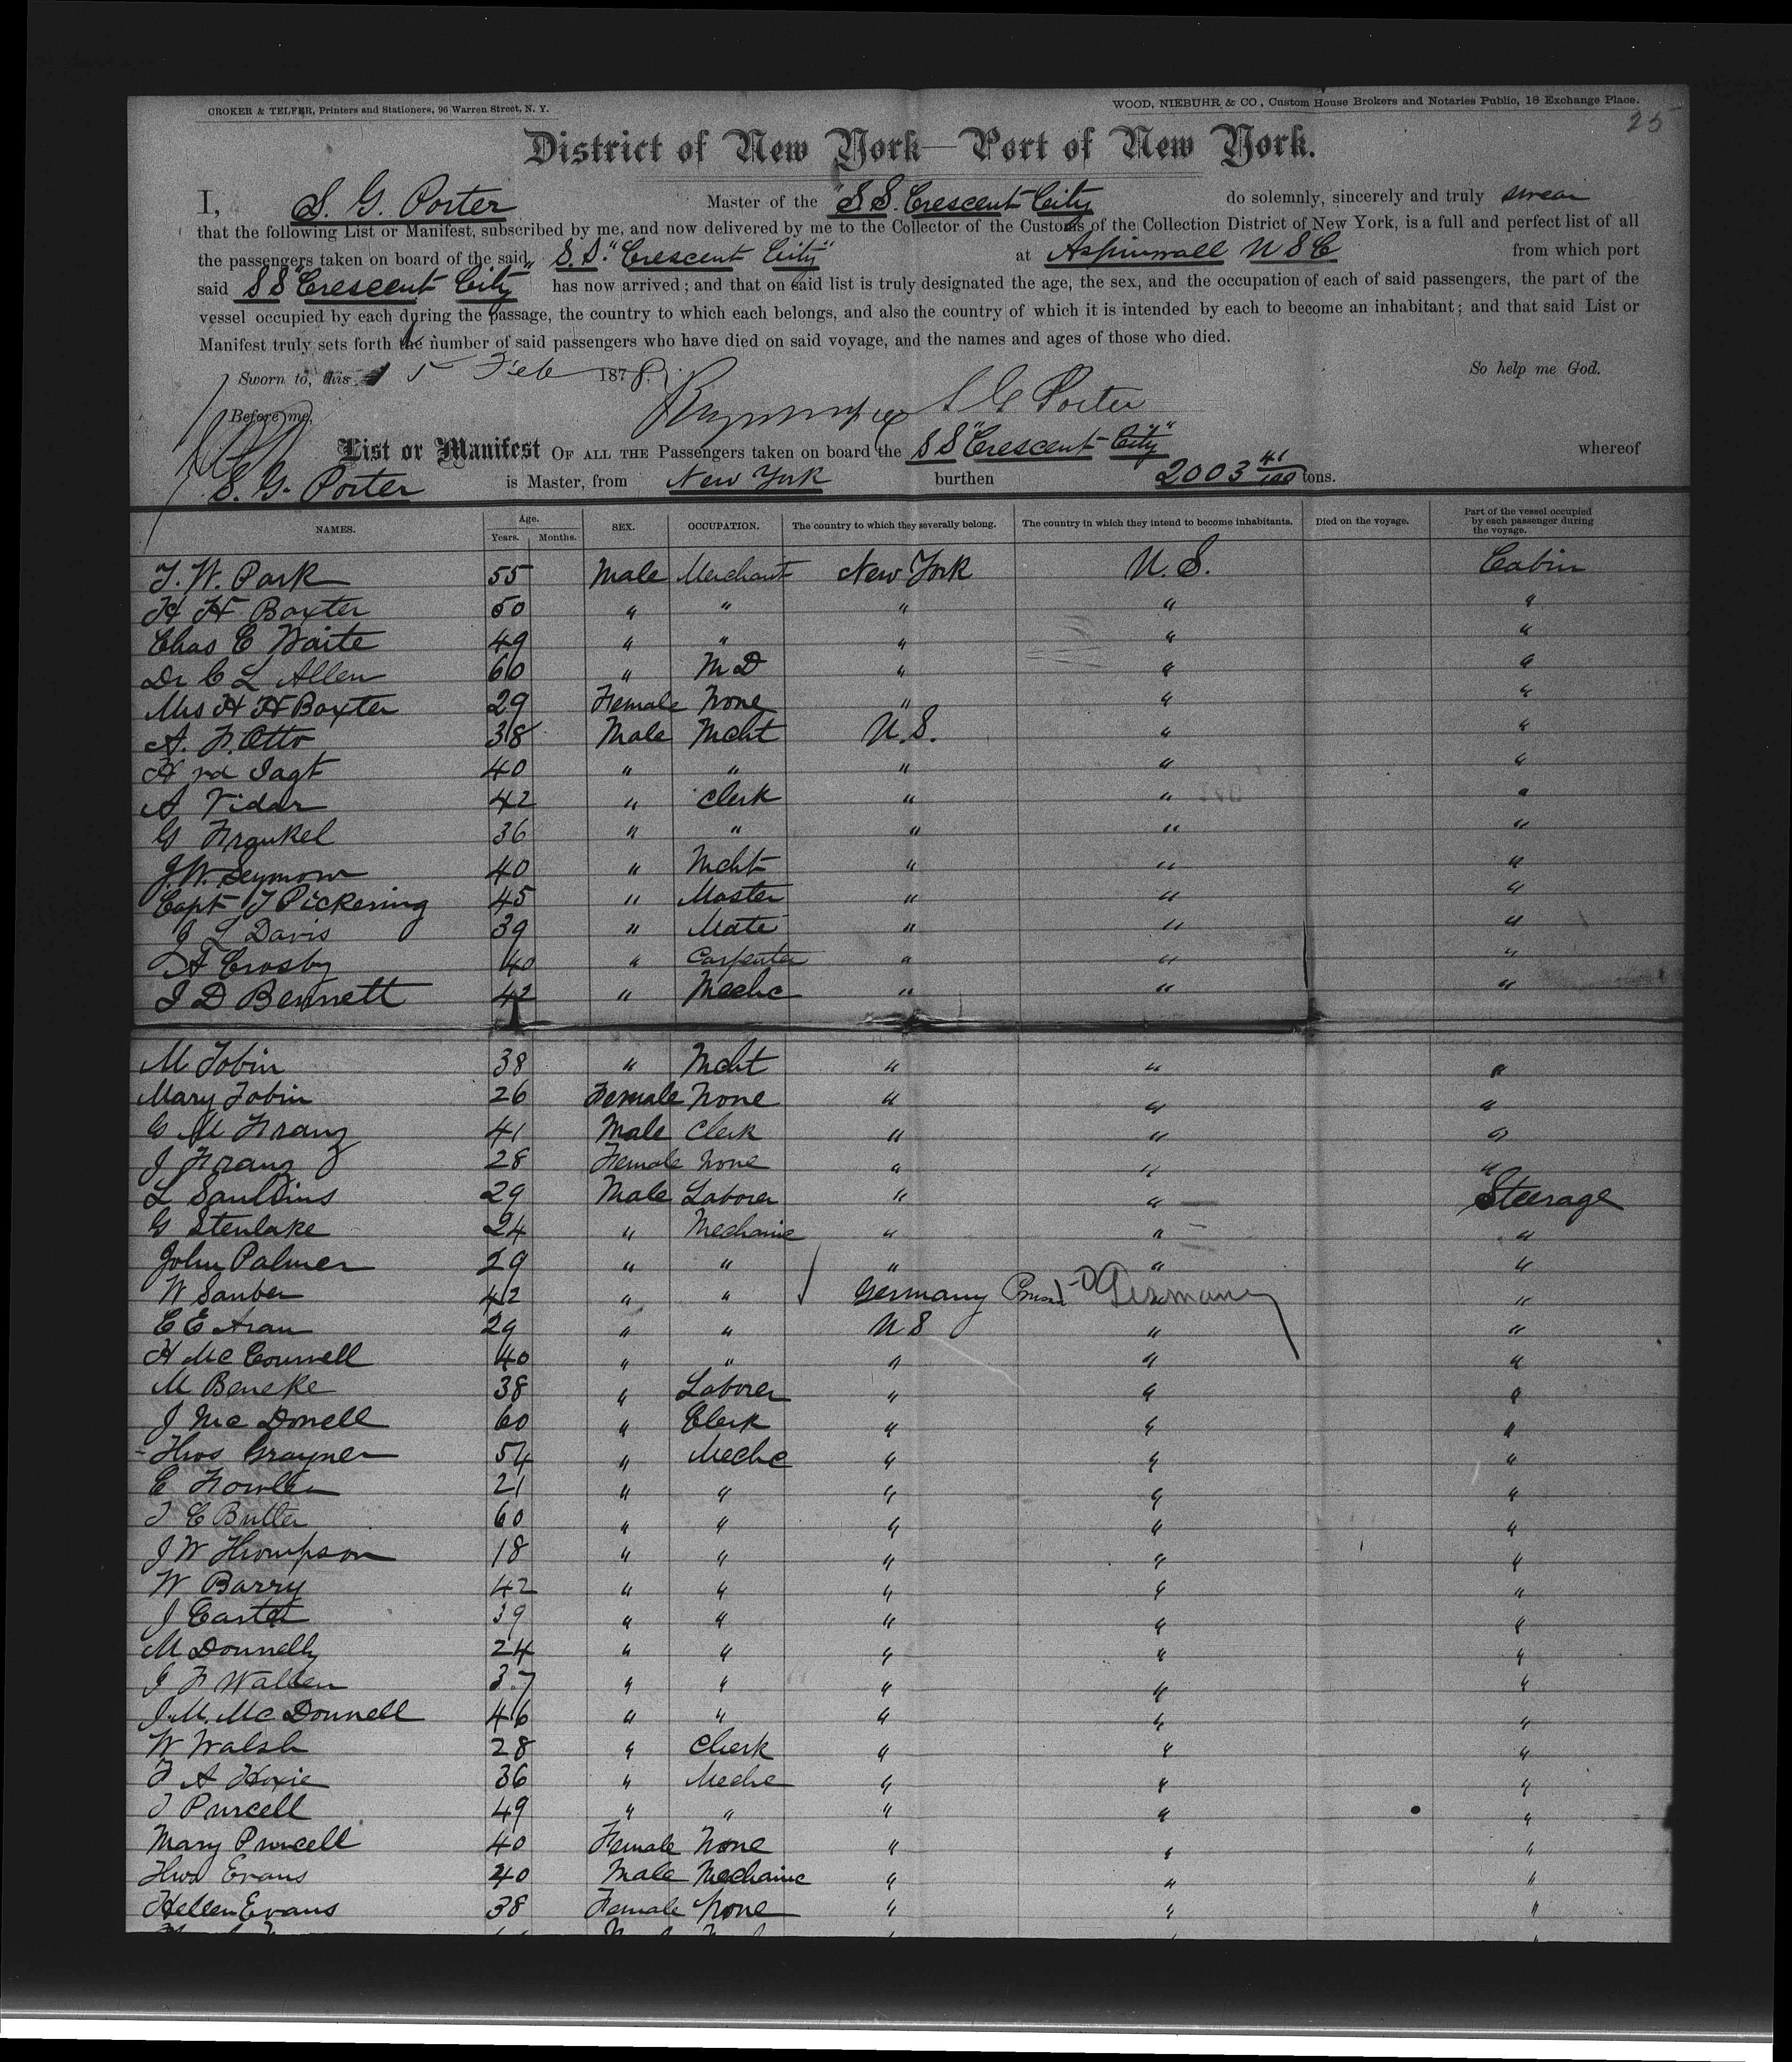 CROKER & TELFER, Printers and Stationers, 96 Warren Street, N. Y.
WOOD, NIEBUHR & CO., Custom House Brokers and Notaries Public, 18 Exchange Place.
25
District of New York—Port of New York.
I, S. G. Porter Master of the "S S. Crescent City do solemnly, sincerely and truly swear
that the following List or Manifest, subscribed by me, and now delivered by me to the Collector of the Customs of the Collection District of New York, is a full and perfect list of all
the passengers taken on board of the said S. S. "Crescent City" at Aspinwall U S C from which port
said S S "Crescent City" has now arrived; and that on said list is truly designated the age, the sex, and the occupation of each of said passengers, the part of the
vessel occupied by each during the passage, the country to which each belongs, and also the country of which it is intended by each to become an inhabitant; and that said List or
Manifest truly sets forth the number of said passengers who have died on said voyage, and the names and ages of those who died.
Sworn to, this 15 Feb 1878. So help me God.
Before me, S G Porter
List or Manifest OF ALL THE Passengers taken on board the S S "Crescent City" whereof
S. G. Porter is Master, from New York burthen 2003 41/100 tons.
NAMES. Age. Years. Months. SEX. OCCUPATION. The country to which they severally belong. The country in which they intend to become inhabitants. Died on the voyage. Part of the vessel occupied by each passenger during the voyage.
T. W. Park 55 Male Merchant New York U. S. Cabin
H H Baxter 50 " " " " "
Chas E Waite 49 " " " " "
Dr C L Allen 60 " M D " " "
Mrs H H Baxter 29 Female None " " "
A. F. Otto 38 Male Mcht U. S. " "
H Jagt 40 " " " " "
A Vidar 42 " Clerk " " "
G Frankel 36 " " " " "
J. W. Seymour 40 " Mcht " " "
Capt J Pickering 45 " Master " " "
J L Davis 39 " Mate " " "
A Crosby 40 " Carpenter " " "
J D Bennett 42 " Mechc " " "
M Tobin 38 " Mcht " " "
Mary Tobin 26 Female None " " "
G M Franz 41 Male Clerk " " "
J Franz 28 Female None " " "
L Sauldins 29 Male Laborer " " Steerage
G Stenlake 24 " Mechanic " " "
John Palmer 29 " " " " "
W Sauber 42 " " Germany Germany "
E E Aran 29 " " U S " "
H McConnell 40 " " " " "
M Beneke 38 " Laborer " " "
J McDonell 60 " Clerk " " "
Thos Grayner 54 " Mechc " " "
E Fowler 21 " " " " "
J C Butler 60 " " " " "
J W Thompson 18 " " " " "
W Barry 42 " " " " "
J 39 " " " " "
M Donnelly 24 " " " " "
J F Wallen 37 " " " " "
J. M. McDonnell 46 " " " " "
W Walsh 28 " Clerk " " "
F A Hoxie 36 " Mechc " " "
J Purcell 49 " " " " "
Mary Purcell 40 Female None " " "
Thos Evans 40 Male Mechanic " " "
Hellen Evans 38 Female None " " "